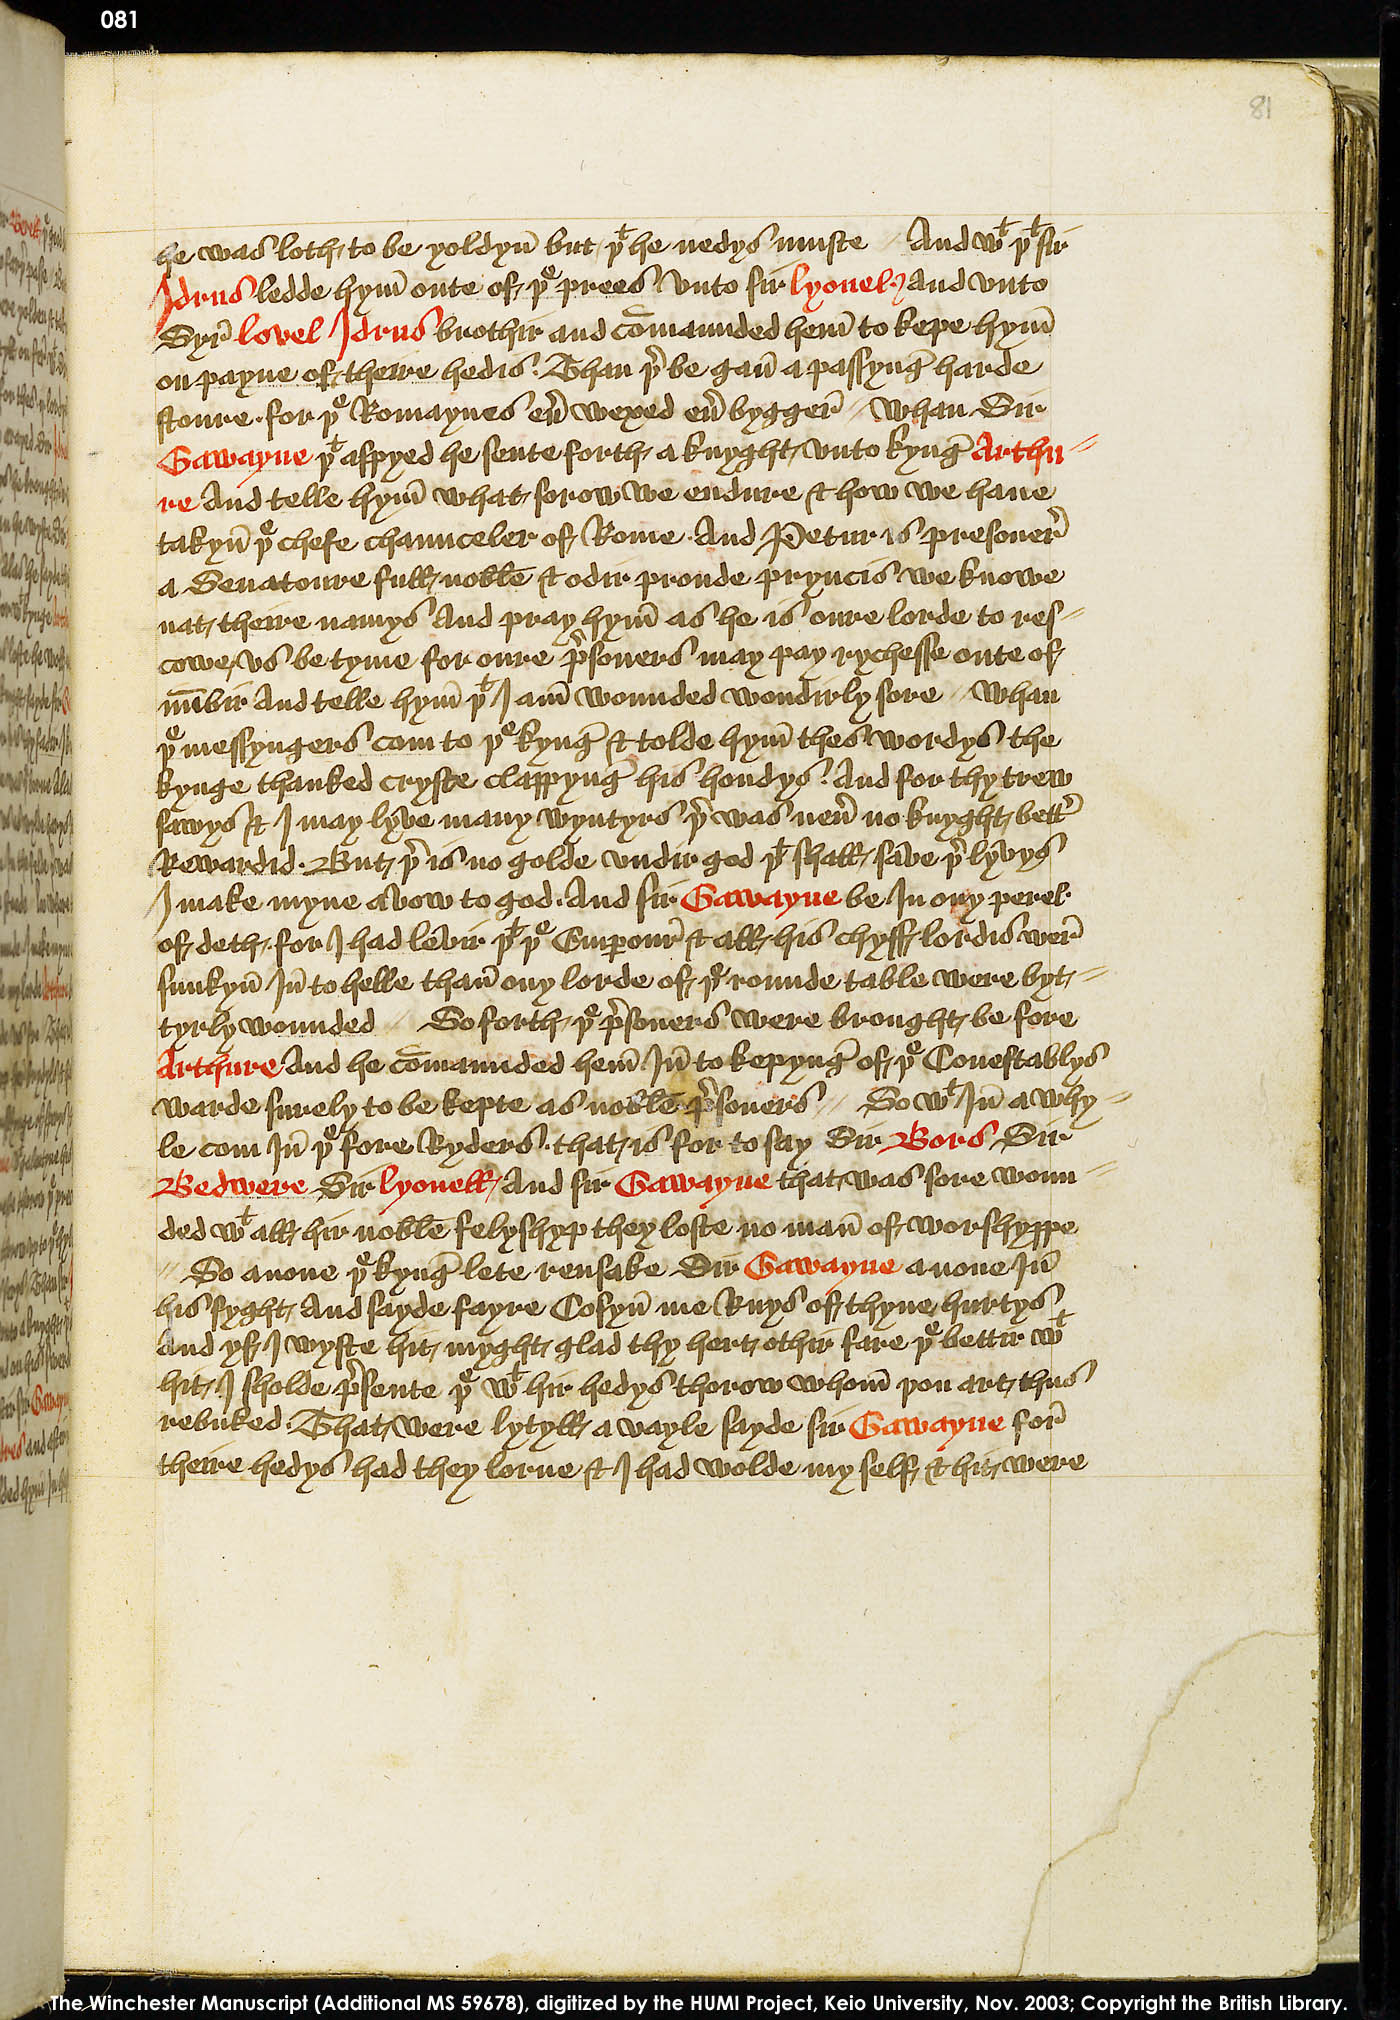 081
81
he was loth to be yoldyn̄ but þᵗ he nedys muste // And wᵗ þᵗ sir
Idrus ledde hym̄ oute of þᵉ prees vnto sir lyonel And vnto
Syr̄ lovel Idrus brothir and cōmaunded hem̄ to kepe hym̄
on payne of theire hedis. Than þʳ be gan̄ a passynḡ harde
stoure. for þᵉ Romaynes eūʳ wexed eūʳ bygger̄ // Whan Sir
Gawayne þᵗ aspyed he sente forth a knyght vnto kynḡ Arthu//
re And telle hym̄ what sorow we endure & how we haue
takyn̄ þᵉ chefe chaunceler of Rome. And Petur is presoner̄
a Senatoure full noble & odir proude pryncis we knowe
nat theire namys And pray hym̄ as he is oure lorde to res//
cowe vs be tyme for oure pʳsoners may pay rychesse oute of
nūbir And telle hym̄ þᵗ I am̄ wounded wondirly sore // Whan
þᵉ messyngers com to þᵉ kynḡ & tolde hym̄ thes wordys the
kynge thanked cryste clappynḡ his hondys. And for thy trew
sawys & I may lyve many wyntyrs þʳ was neūʳ no knyght bettʳ
Rewardid. But þʳ is no golde vndir god þᵗ shall save þʳ lyvys
I make myne avow to god. And sir Gawayne be In ony perel
of deth. for I had levir þᵗ þᵉ Emperour̄ & all his chyff lordis wer̄
sunkyn̄ In̄ to helle than̄ ony lorde of þᵉ rounde table were byt//
tyrly wounded // So forth þᵉ pʳsoners were brought be fore
Arthure And he cōmaunded hem̄ In̄ to kepynḡ of þᵉ Conestablys
warde surely to be kepte as noble pʳsoners // So wᵗ In̄ a why//
le com In̄ þᵉ fore Ryders. that is for to say Sir Bors Sir
Bedwere Sir lyonell And sir Gawayne that was sore woun//
ded wᵗ all hir noble felyshyp they loste no man̄ of worshyppe
// So anone þᵉ kynḡ lete rensake Sir Gawayne anone In̄
his syght And sayde fayre Cosyn̄ me Ruys of thyne hurtys
And yf I wyste hit myght glad thy hert othir fare þᵉ bettir wᵗ
hit I sholde pʳsente þᵉ wᵗ hir hedys thorow whom̄ þou art thus
rebuked. That were lytyll a vayle sayde sir Gawayne for̄
theire hedys had they lorne & I had wolde my self & hit were
The Winchester Manuscript (Additional MS 59678), digitized by the HUMI Project, Keio University, Nov. 2003; Copyright the British Library.